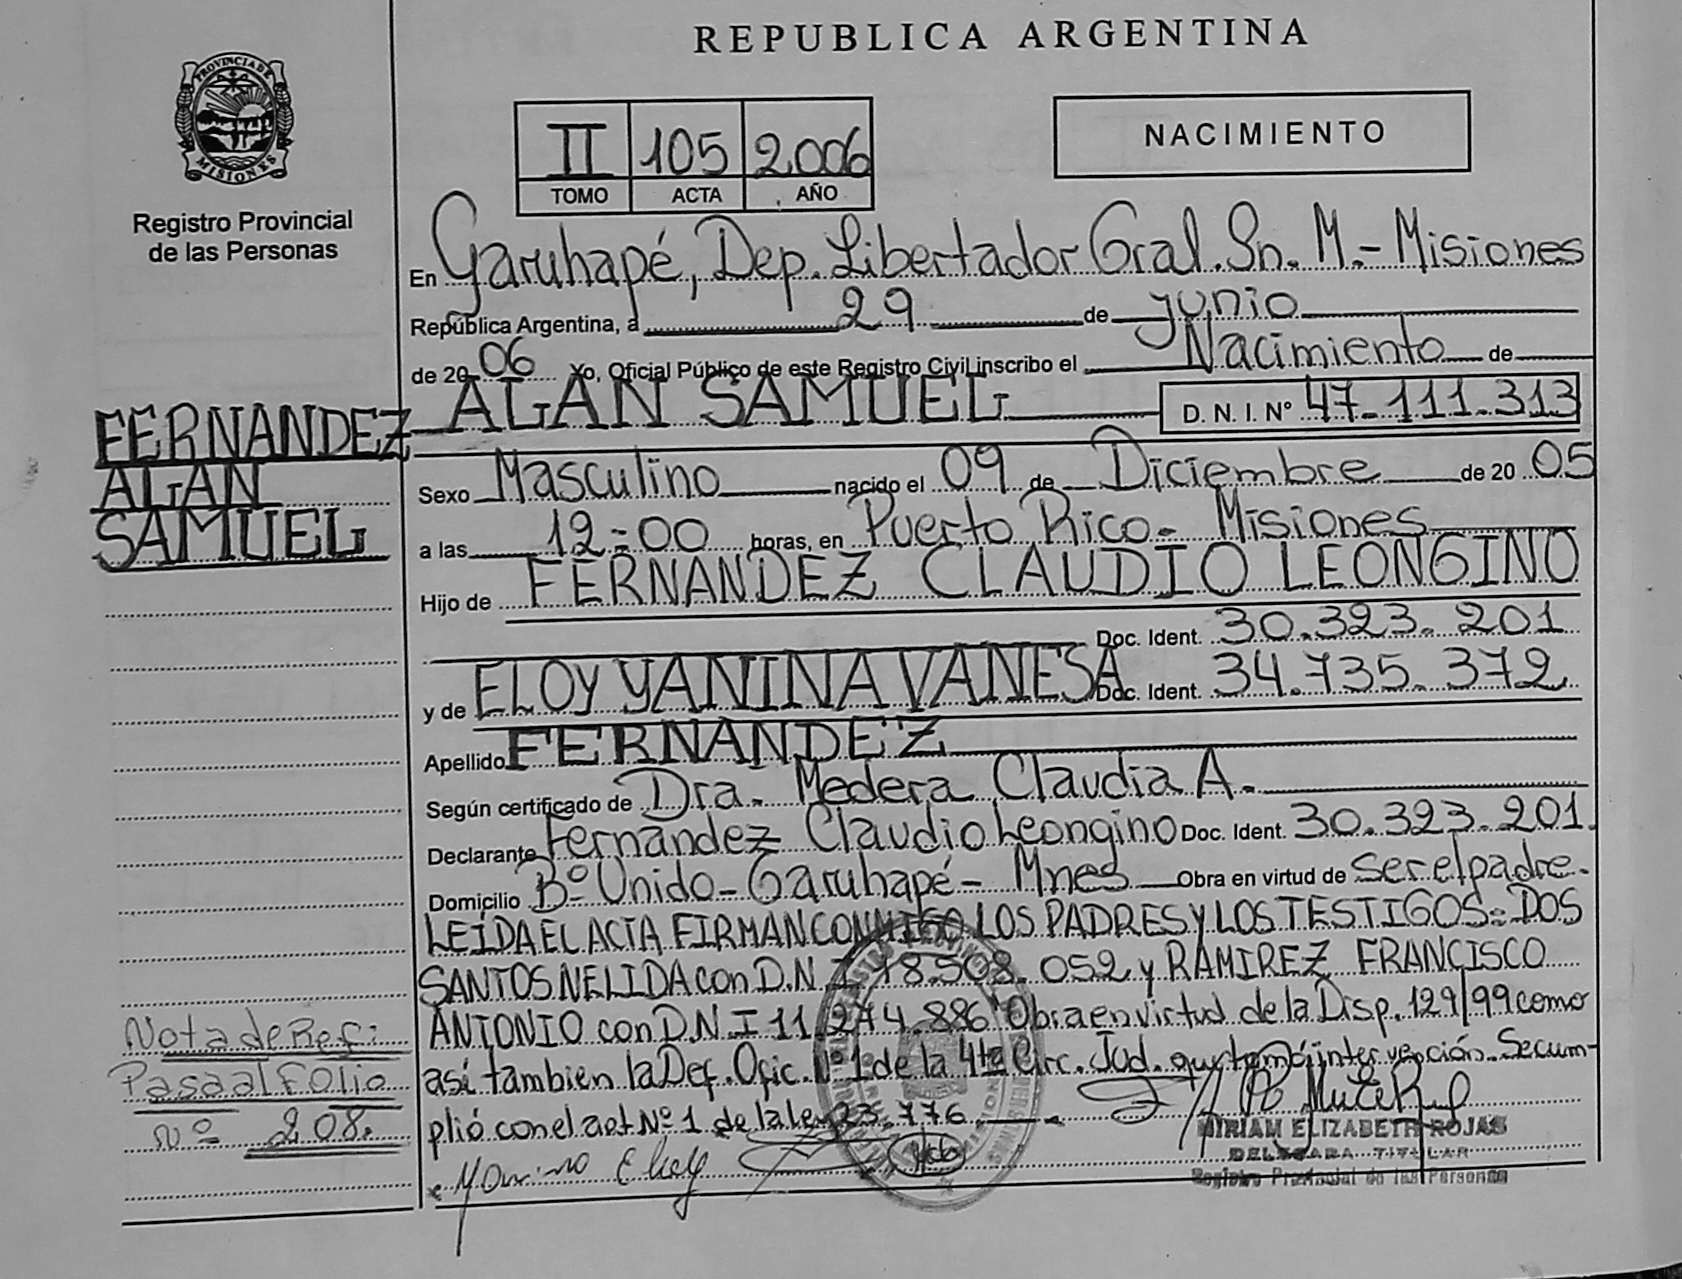 REPUBLICA ARGENTINA
PROVINCIA DE MISIONES
Registro Provincial
de las Personas
II 105 2006
TOMO ACTA AÑO
NACIMIENTO
En Garuhapé, Dep. Libertador Gral. Sn. M.- Misiones
República Argentina, a 29 de junio
de 2006 Yo, Oficial Público de este Registro Civil inscribo el Nacimiento de
ALAN SAMUEL D. N. I. Nº 47.111.313
FERNANDEZ
ALAN
SAMUEL
Sexo Masculino nacido el 09 de Diciembre de 2005
a las 12-00 horas, en Puerto Rico- Misiones
Hijo de FERNANDEZ CLAUDIO LEONGINO
Doc. Ident. 30.323.201
y de ELOY YANINA VANESA Doc. Ident. 34.735.372
Apellido FERNANDEZ
Según certificado de Dra. Medera Claudia A.
Declarante Fernandez Claudio Leongino Doc. Ident. 30.323.201.
Domicilio Bº Unido-Garuhapé- Mnes Obra en virtud de ser el padre.
LEÍDA EL ACTA FIRMAN CONMIGO LOS PADRES Y LOS TESTIGOS: DOS
SANTOS NELIDA con D.N.I 18.508.052 y RAMIREZ FRANCISCO
ANTONIO con D.N.I 11.274.886 Obra en virtud de la Disp. 129/99 como
así tambien la Def. Ofic. Nº 1 de la 4ta Circ. Jud. que toma intervención. Se cum-
plió con el art Nº 1 de la ley 23.776.
Nota de Ref:
Pasa al Folio
Nº 208.
MIRIAM ELIZABETH ROJAS
DELEGADA TITULAR
Registro Provincial de las Personas